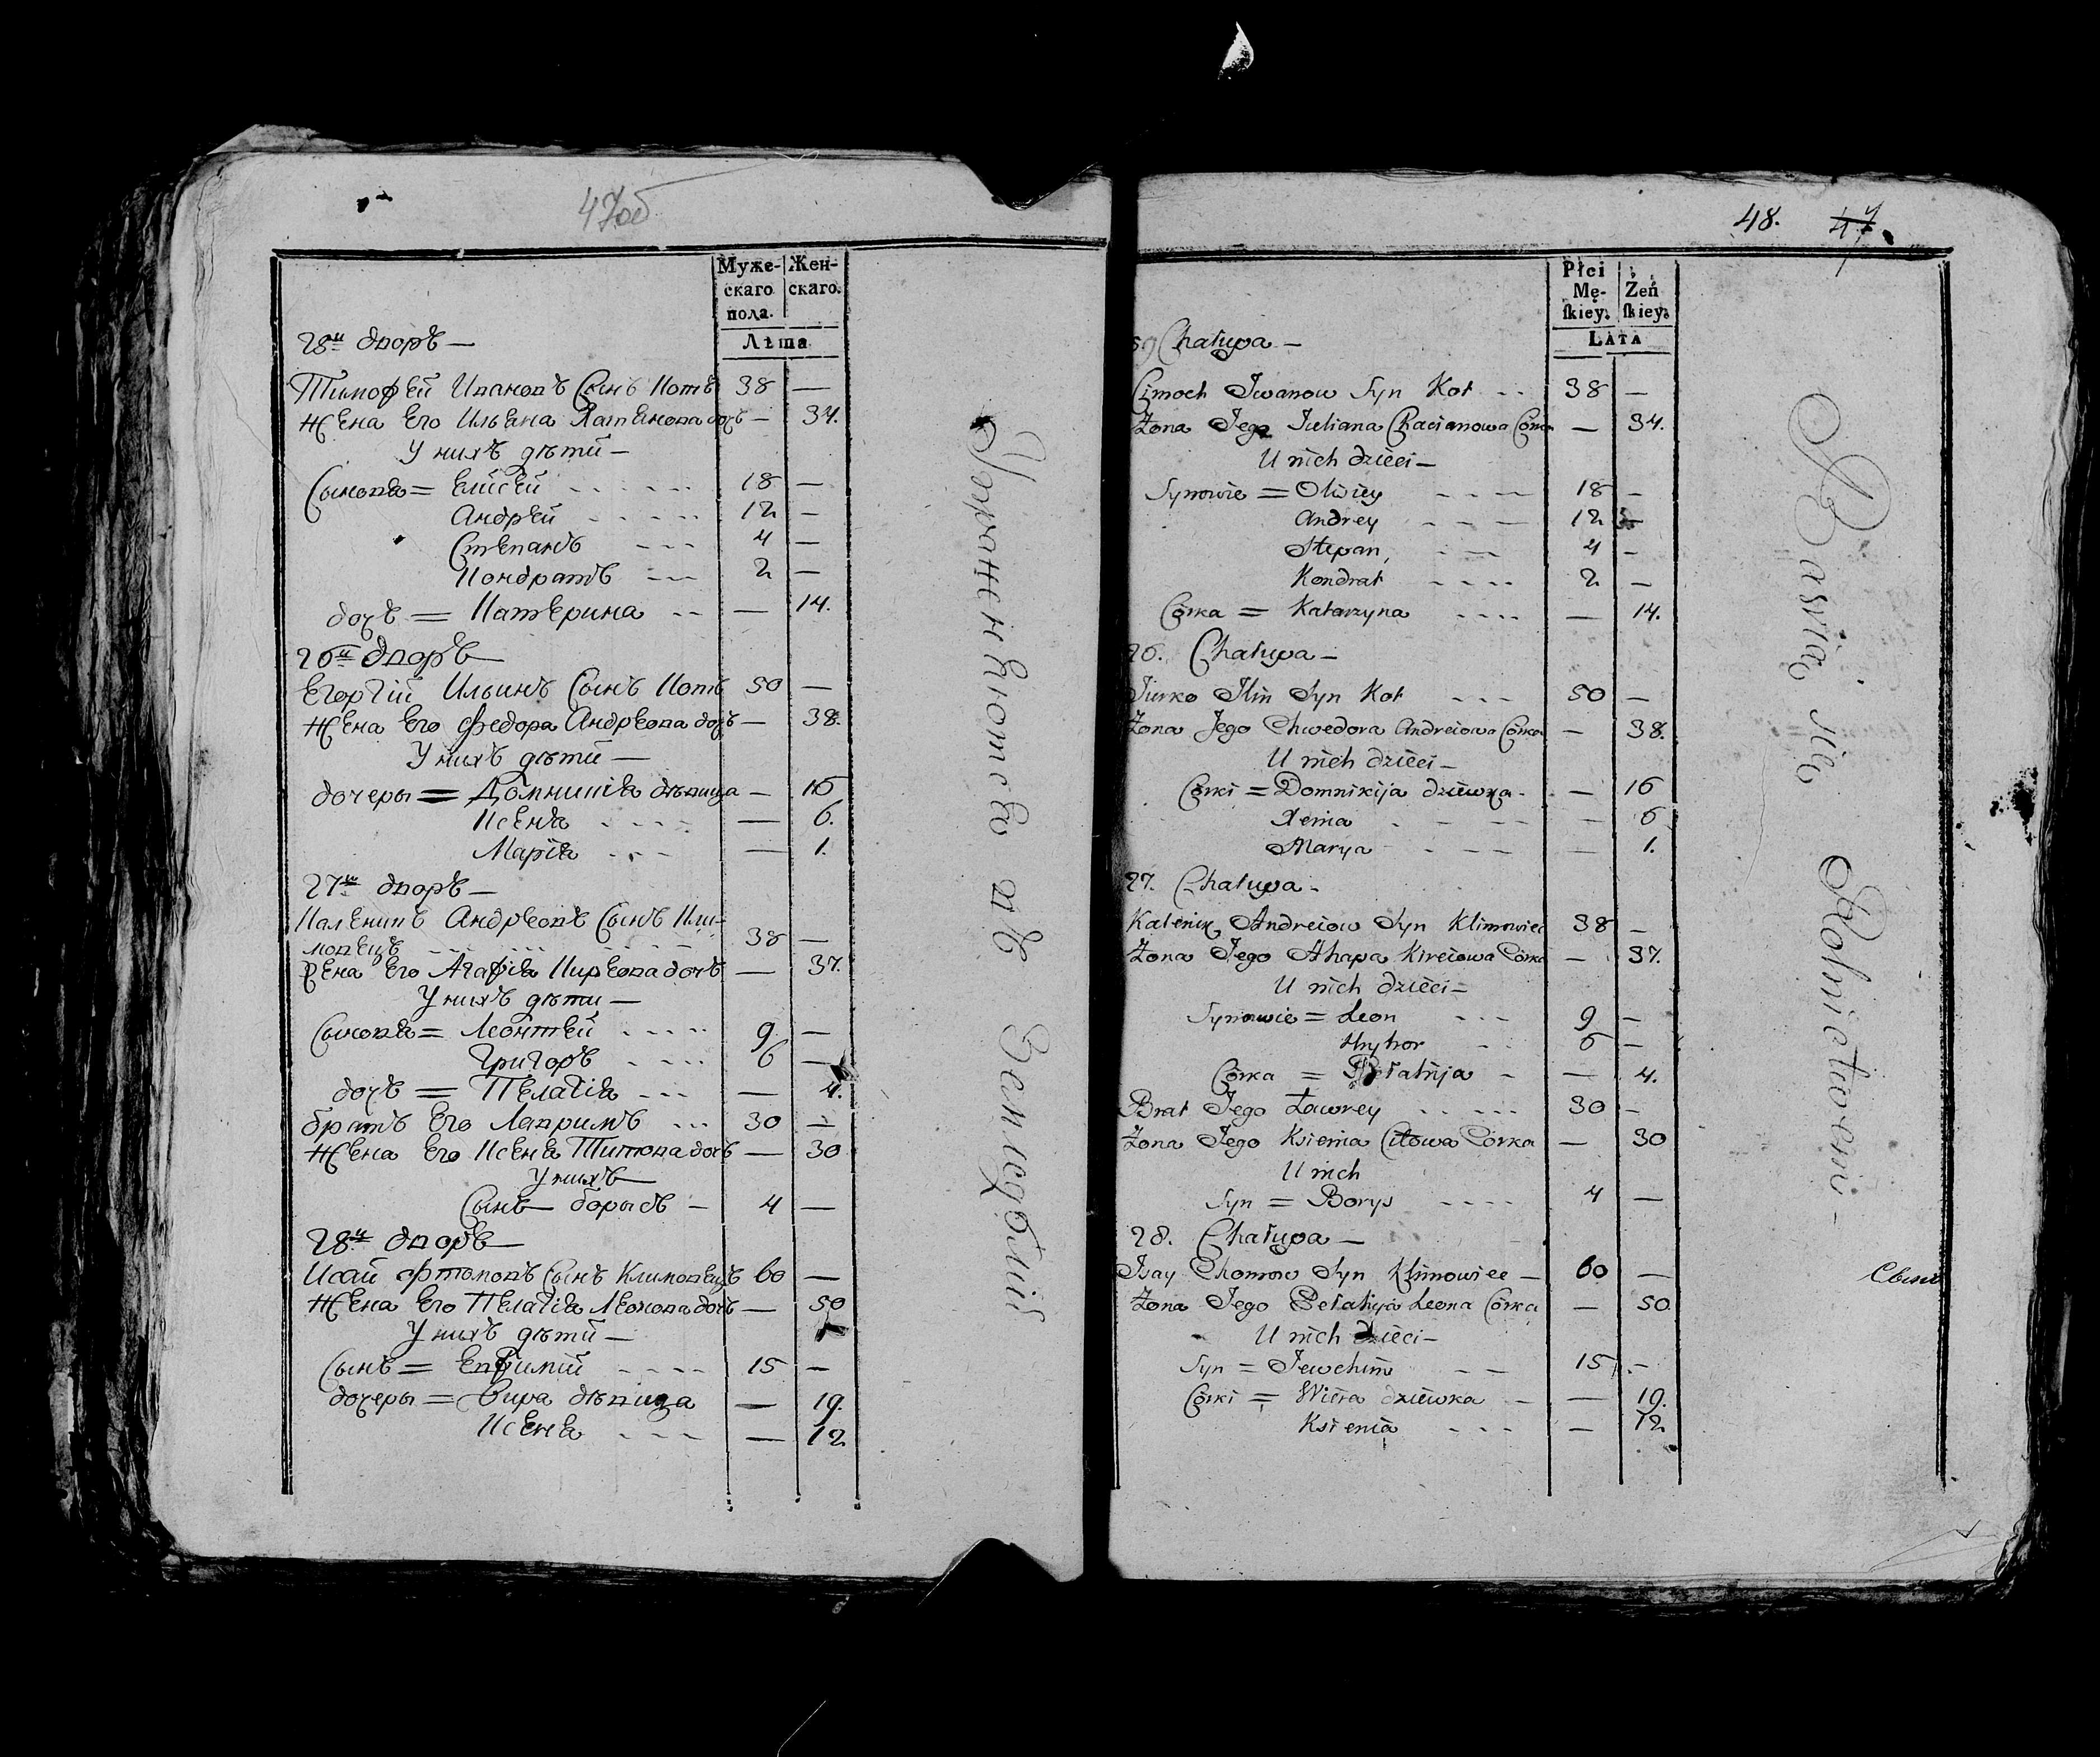 47об
Муже-
скаго
пола.
Жен-
скаго.
Лѣта
28й дворъ —
Тимофей Ивановъ Сынъ Котъ 38 —
Жена Его Ильяна Хатянова дочь — 34.
У нихъ дѣти —
Сыновя = Елисей 18 —
Андрей 12 —
Степанъ 4 —
Кондратъ 2 —
дочь = Катерина — 14.
26й дворъ —
Егоргій Ильинъ Сынъ Котъ 50 —
Жена Его Федора Андреева дочь — 38.
У нихъ дѣти —
дочеры = Домникія дѣвица — 16
Ксеня — 6.
Марія — 1.
27й дворъ —
Каленикъ Андреевъ Сынъ Кли-
мовецъ 38 —
Жена Его Агафія Киреева дочь — 37.
У нихъ дѣти —
Сыновя = Леонтей 9 —
Григоръ 6 —
дочь = Пелагія — 4.
братъ Его Лавримъ 30 —
Жена Его Ксеня Титова дочь — 30
У нихъ —
Сынъ — борысъ 4 —
28й дворъ —
Исай Фтомовъ Сынъ Климовецъ 60 —
Жена Его Пелагія Леонова дочь — 50
У нихъ дѣти —
Сынъ = Евфимій 15 —
дочеры = Вира дѣвица — 19.
Ксеня — 12
Упражняются въ Земледѣліи
48. 47
Płci
Mę-
ſkiey.
Żeń
ſkiey.
LATA
Chałupa —
Cimoch Iwanow Syn Kot 38 —
Żona Jego Juliana Chacianowa Córka — 34.
U nich dzieci —
Synowie = Oliziey 18 —
Andrey 12 —
Stepan 4 —
Kondrat 2 —
Córka = Katarzyna — 14.
26. Chałupa —
Jurko Ilin Syn Kot 50 —
Żona Jego Chwedora Andreiowa Córka — 38.
U nich dzieci —
Córki = Domnikija dziewka — 16
Xenia — 6
Marya — 1.
27. Chałupa —
Kalenik Andreiow Syn Klimowiec 38 —
Żona Jego Ahapa Kireiowa Córka — 37.
U nich dzieci —
Synowie = Leon 9 —
Hryhor 6 —
Córka = Pełahija — 4.
Brat Jego Ławrey 30 —
Żona Jego Ksienia Citowa Córka — 30
U nich
Syn = Borys 4 —
28. Chałupa —
Isay Chomow Syn Klimowiec — 60 —
Żona Jego Pełahija Leona Córka — 50.
U nich dzieci —
Syn = Jewchim 15 —
Córki = Wiera dziewka — 19.
Ksienia — 12
Bawią się Rolnictwem —